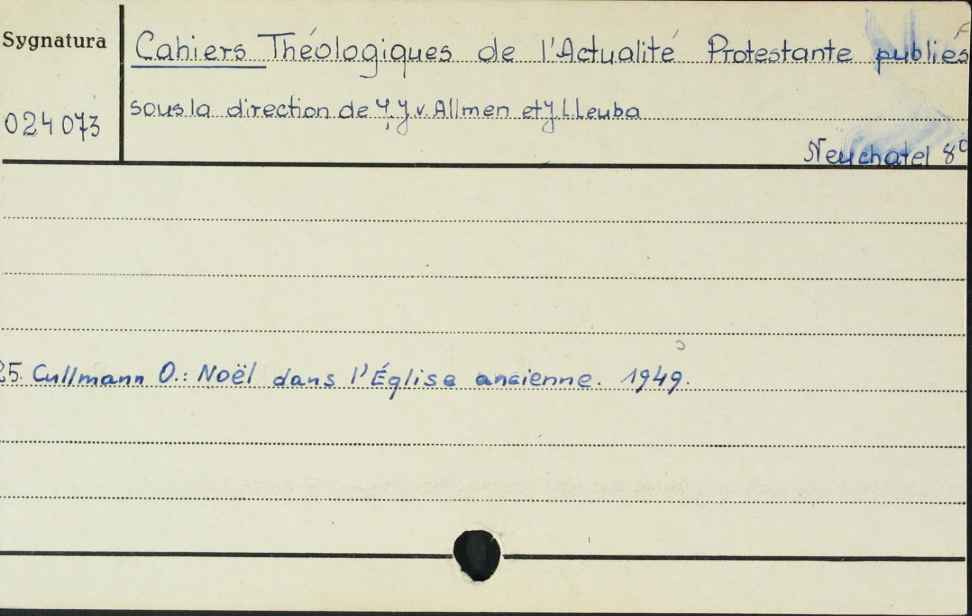 Sygnatura
Cahiers Théologiques de l'Actualité Protestante publiés
sous la direction de J.J.v.Allmen et J.L.Leuba
024073
Neuchatel 8°
25. Cullmann O.: Noël dans l'Église ancienne. 1949.